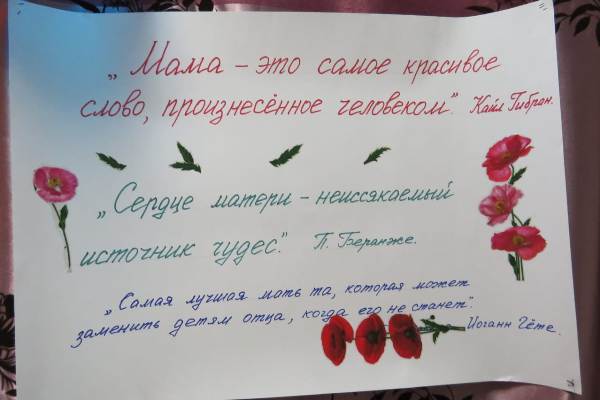 „Мама – это самое красивое
слово, произнесённое человеком". Кайл Гибран.
„Сердце матери – неиссякаемый
источник чудес". П. Беранже.
„Самая лучшая мать та, которая может
заменить детям отца, когда его не станет".
Иоганн Гёте.